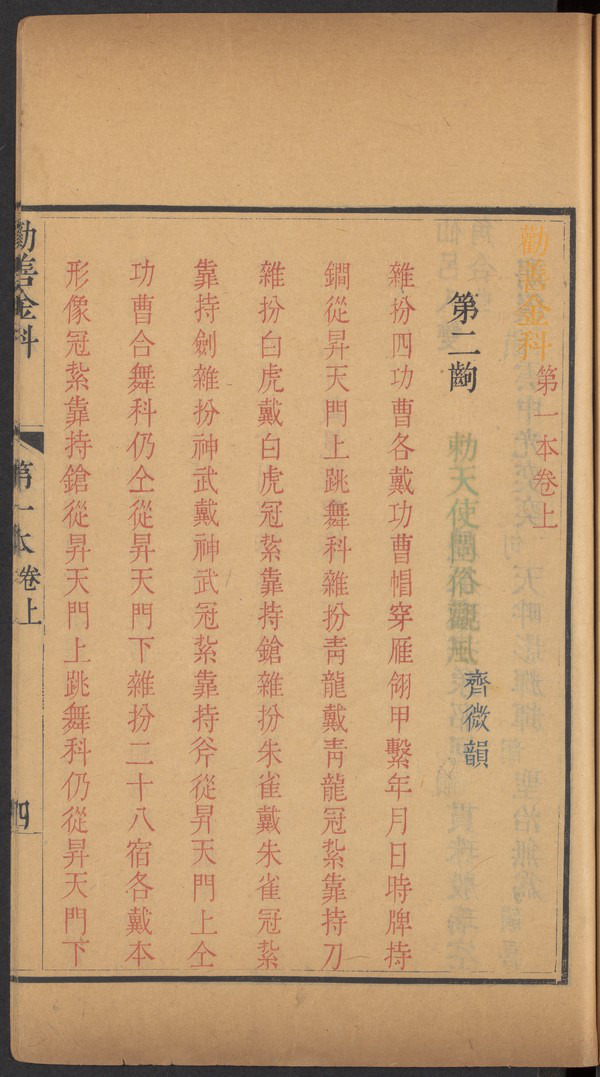 勸善金科 第一本卷上
第二齣 勅天使問俗觀風 齊微韻
雜扮四功曹各戴功曹帽穿雁翎甲繫年月日時牌持
鐧從昇天門上跳舞科雜扮靑龍戴靑龍冠紮靠持刀
雜扮白虎戴白虎冠紮靠持鎗雜扮朱雀戴朱雀冠紮
靠持劍雜扮神武戴神武冠紮靠持斧從昇天門上仝
功曹合舞科仍仝從昇天門下雜扮二十八宿各戴本
形像冠紮靠持鎗從昇天門上跳舞科仍從昇天門下
勸善金科 第一本卷上 四